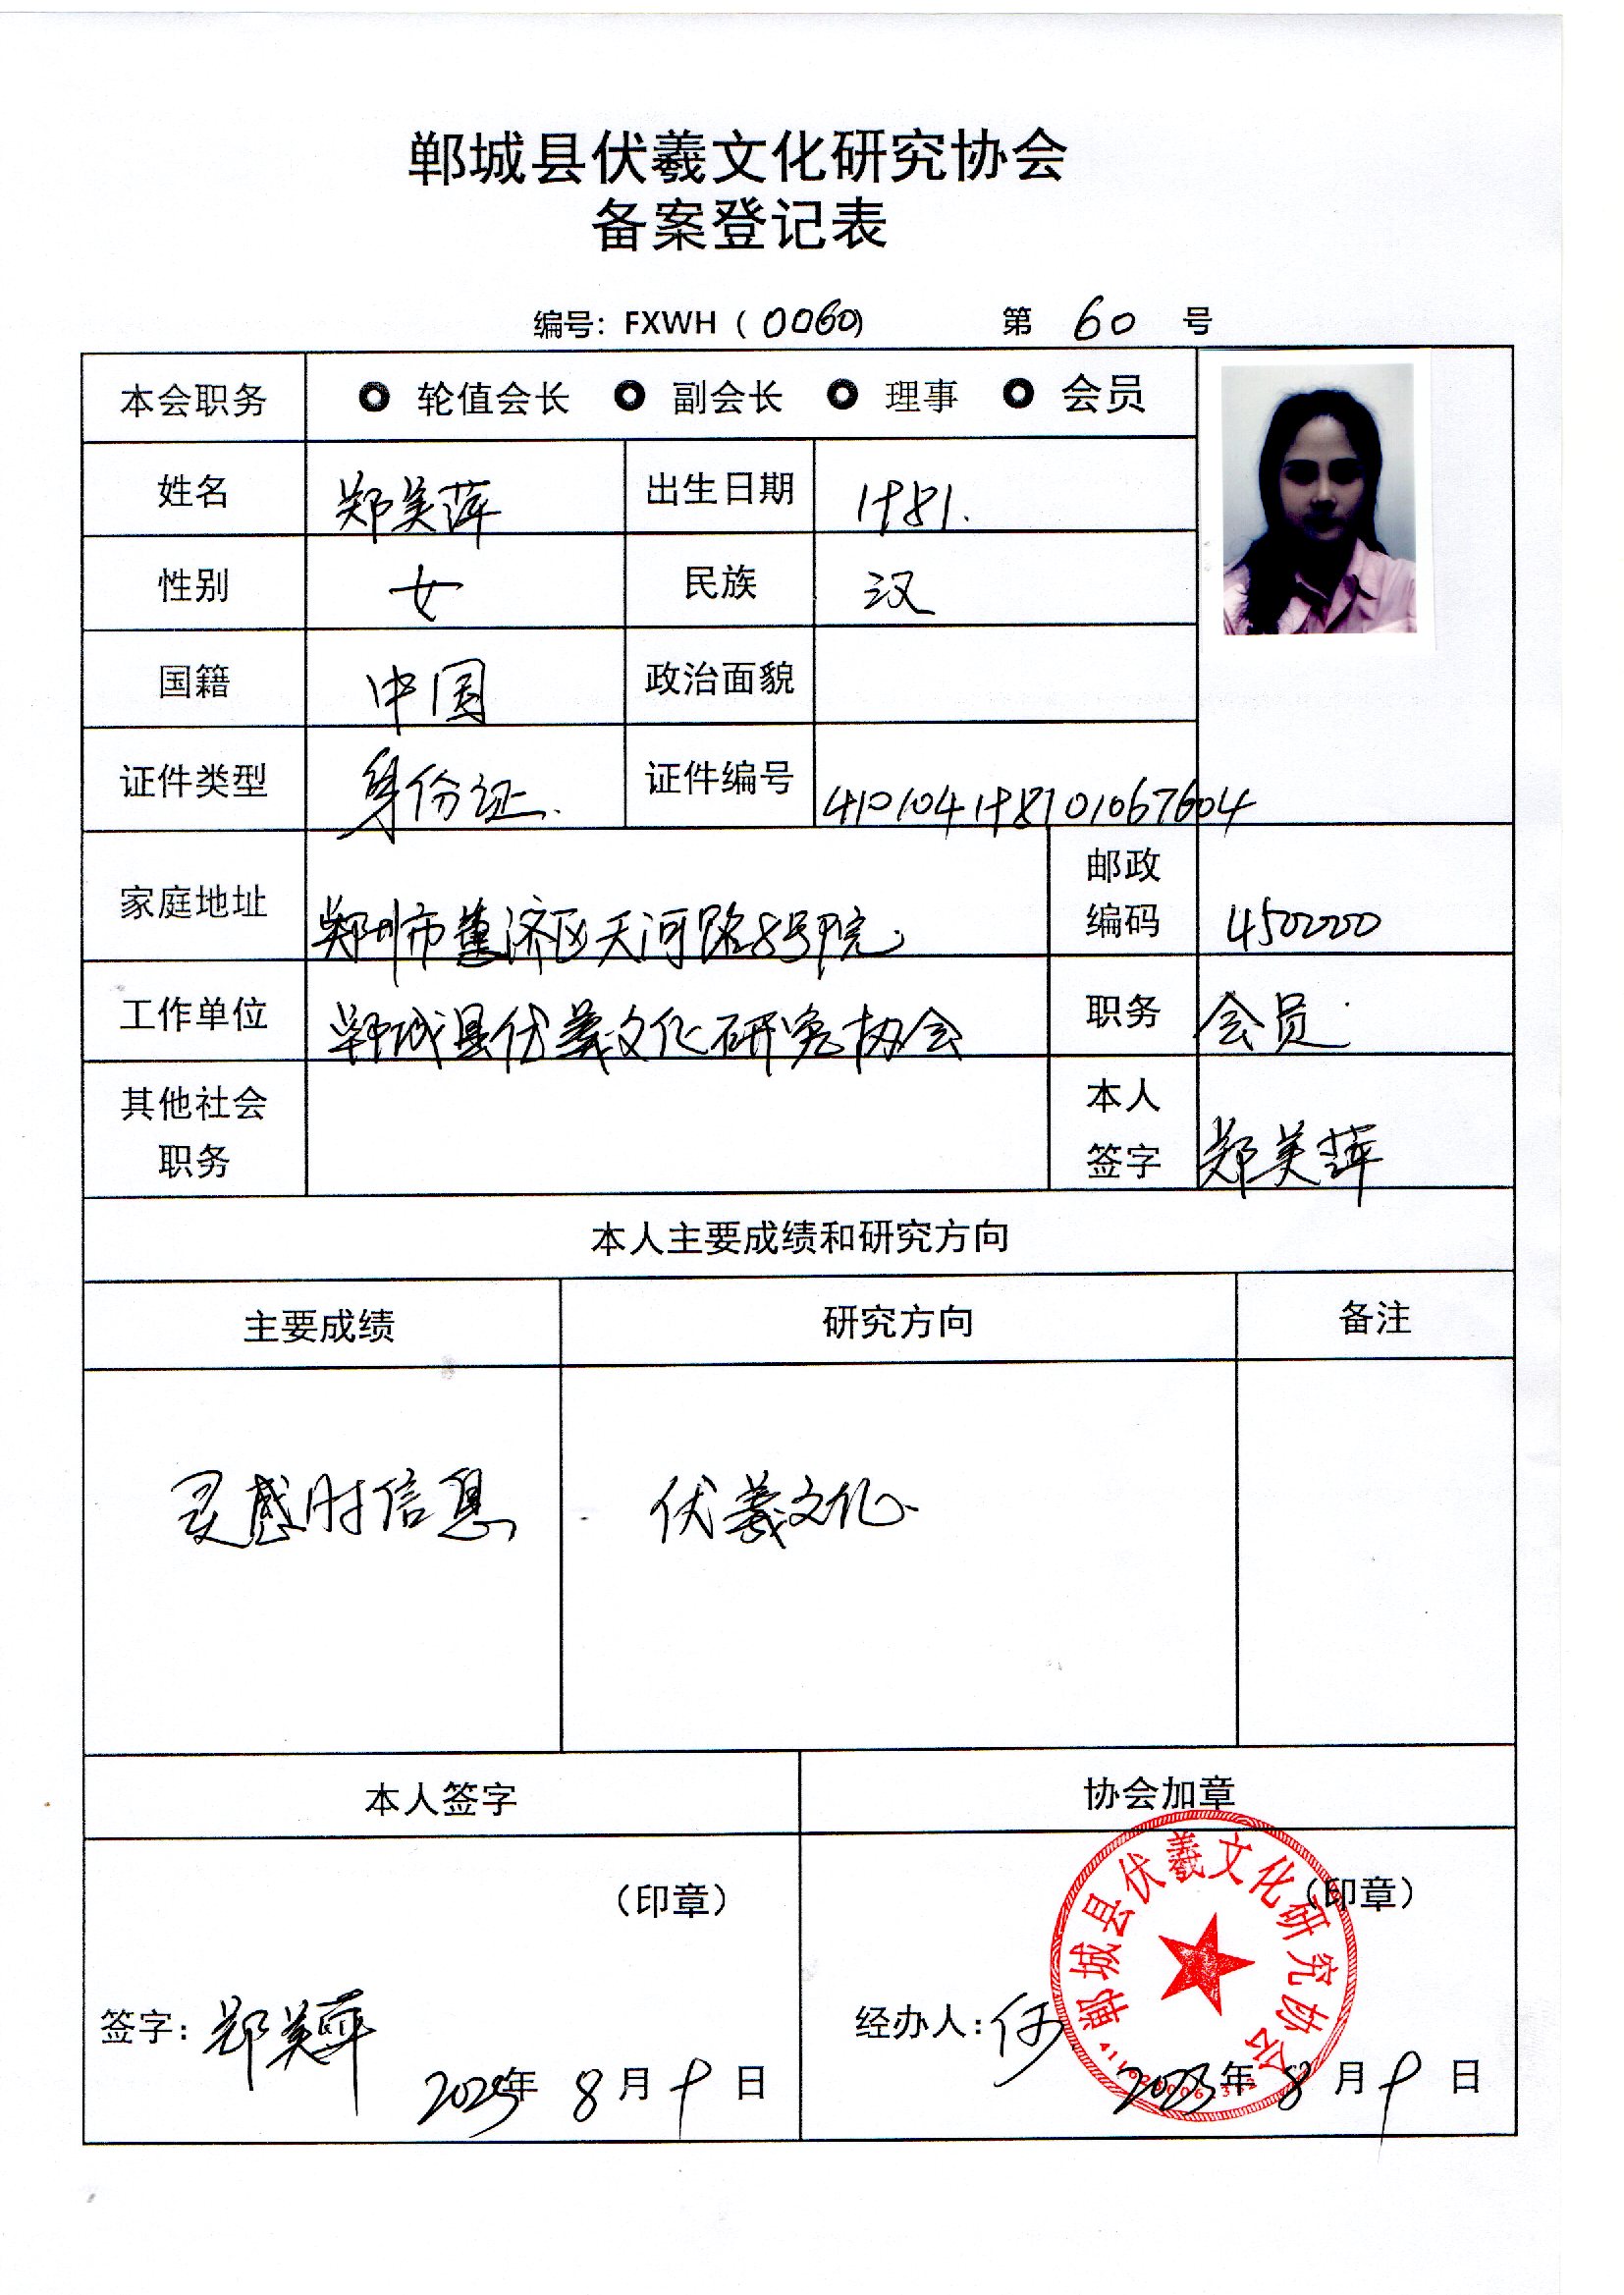 郸城县伏羲文化研究协会
备案登记表
编号：FXWH（0060） 第 60 号
本会职务 轮值会长 副会长 理事 会员
姓名 郑美萍 出生日期 1981.
性别 女 民族 汉
国籍 中国 政治面貌
证件类型 身份证. 证件编号 410104198101067604
家庭地址 郑州市惠济区天河路8号院. 邮政编码 450000
工作单位 郸城县伏羲文化研究协会 职务 会员.
其他社会职务 本人签字 郑美萍
本人主要成绩和研究方向
主要成绩 研究方向 备注
灵感时信息 伏羲文化.
本人签字 协会加章
（印章） （印章）
郸城县伏羲文化研究协会
签字：郑美萍 经办人：何
年 8 月 9 日 2023年 8 月 9 日